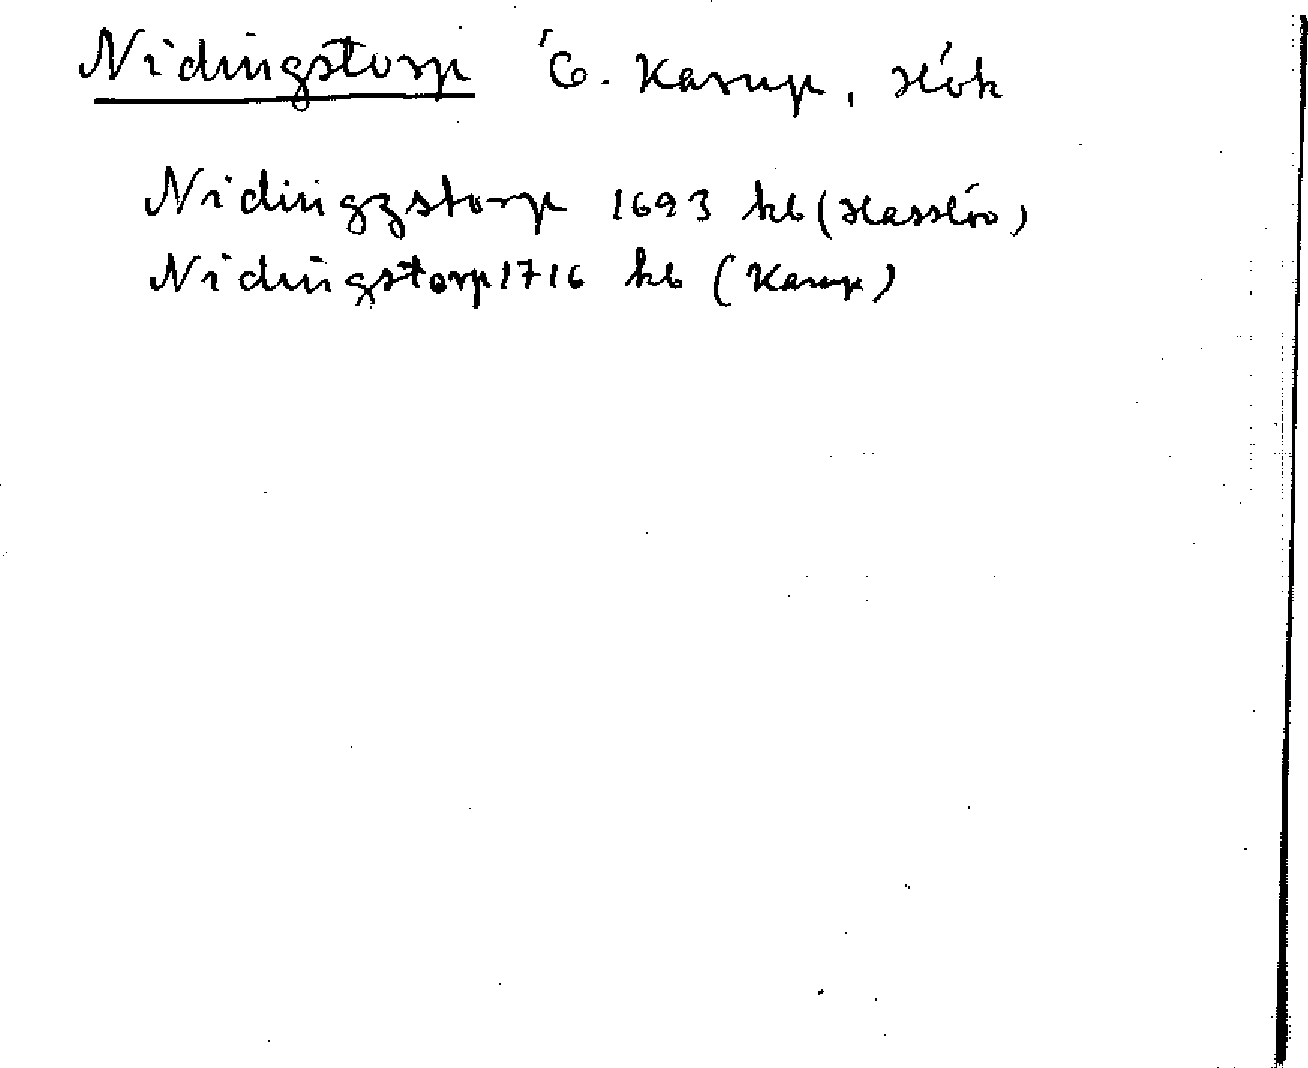 Nidingstorp Ö. Karup, Hök
Nidingzstorp 1693 kb (Hasslöv)
Nidingstorp 1716 kb (Karup)